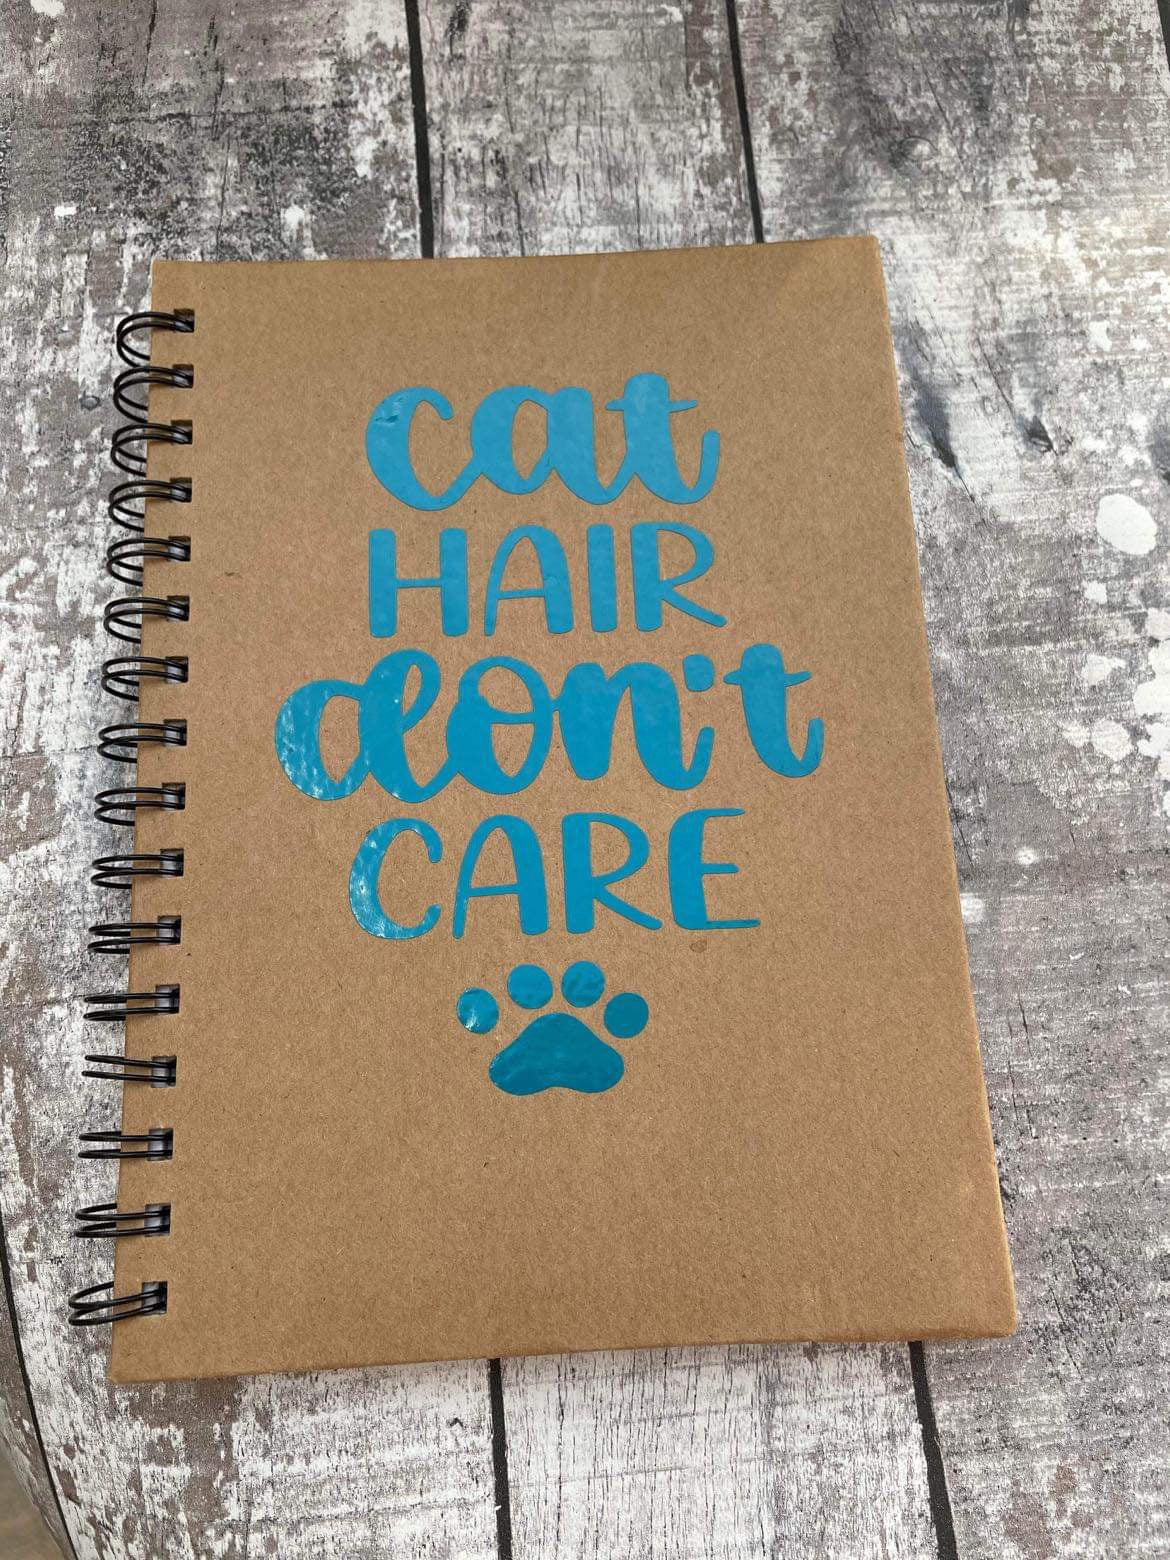 cat
HAIR
don't
CARE